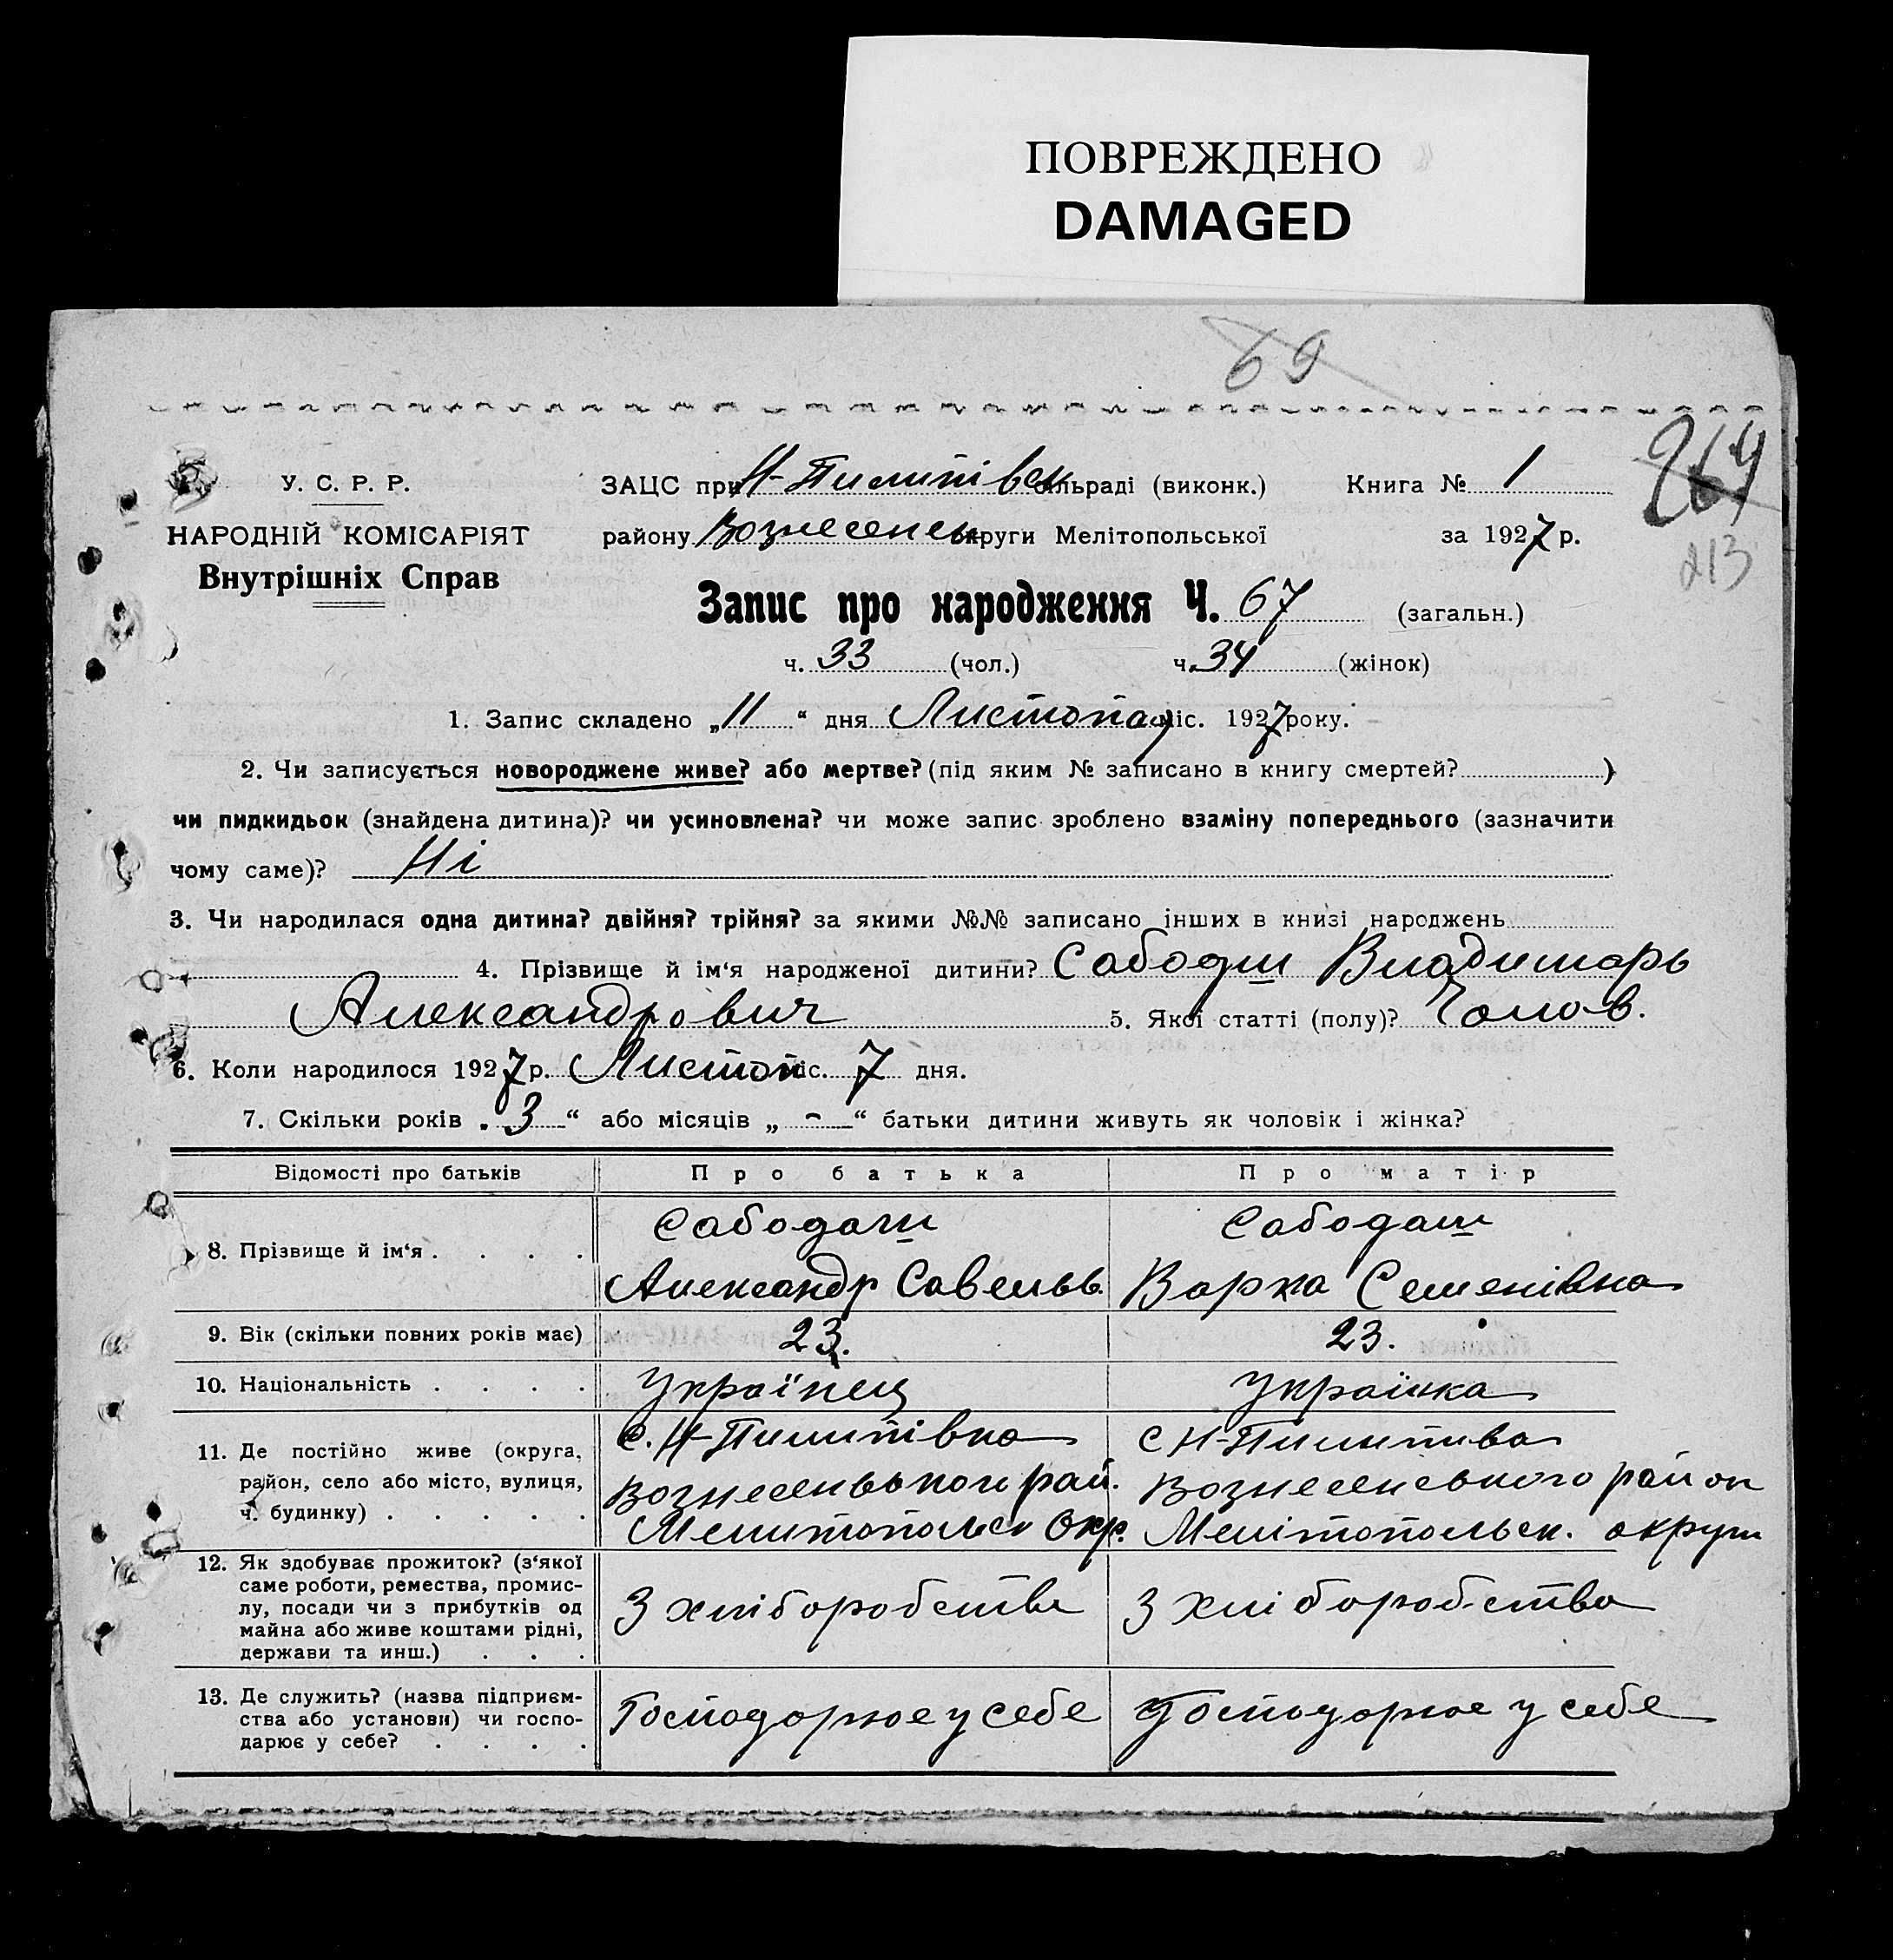 ПОВРЕЖДЕНО
DAMAGED
69
264
213
У. С. Р. Р.
НАРОДНІЙ КОМІСАРІЯТ
Внутрішніх Справ
ЗАЦС при Н-Пилипівск сільраді (виконк.) Книга № 1
району Вознесенськ округи Мелітопольської за 1927 р.
Запис про народження Ч. 67 (загальн.)
ч. 33 (чол.) ч. 34 (жінок)
1. Запис складено „11“ дня Листопад міс. 1927 року.
2. Чи записується новороджене живе? або мертве? (під яким № записано в книгу смертей? )
чи пидкидьок (знайдена дитина)? чи усиновлена? чи може запис зроблено взаміну попереднього (зазначити
чому саме)? Ні
3. Чи народилася одна дитина? двійня? трійня? за якими №№ записано інших в книзі народжень
4. Прізвище й ім‘я народженої дитини? Сабодаш Владимарь
Александрович 5. Якої статті (полу)? Чолов.
6. Коли народилося 1927 р. Листоп міс. 7 дня.
7. Скільки років „3“ або місяців „-“ батьки дитини живуть як чоловік і жінка?
Відомості про батьків Про батька Про матір
8. Прізвище й ім‘я . . . .
Сабодаш
Александр Савельев.
Сабодаш
Варка Семенівна
9. Вік (скільки повних років має) 23. 23.
10. Національність . . . . Українец Українка
11. Де постійно живе (округа,
район, село або місто, вулиця,
ч. будинку) . . . . .
с. Н-Пилипівка
Вознесенського рай.
Мелитопольск Окр.
с Н-Пилипива
Вознесенського район
Мелітопольск. округи
12. Як здобуває прожиток? (з‘якої
саме роботи, ремества, промис-
лу, посади чи з прибутків од
майна або живе коштами рідні,
держави та инш.) . . .
З хліборобства
З хліборобства
13. Де служить? (назва підприєм-
ства або установи) чи госпо-
дарює у себе? . . . .
Господорює у себе
Господорює у себе